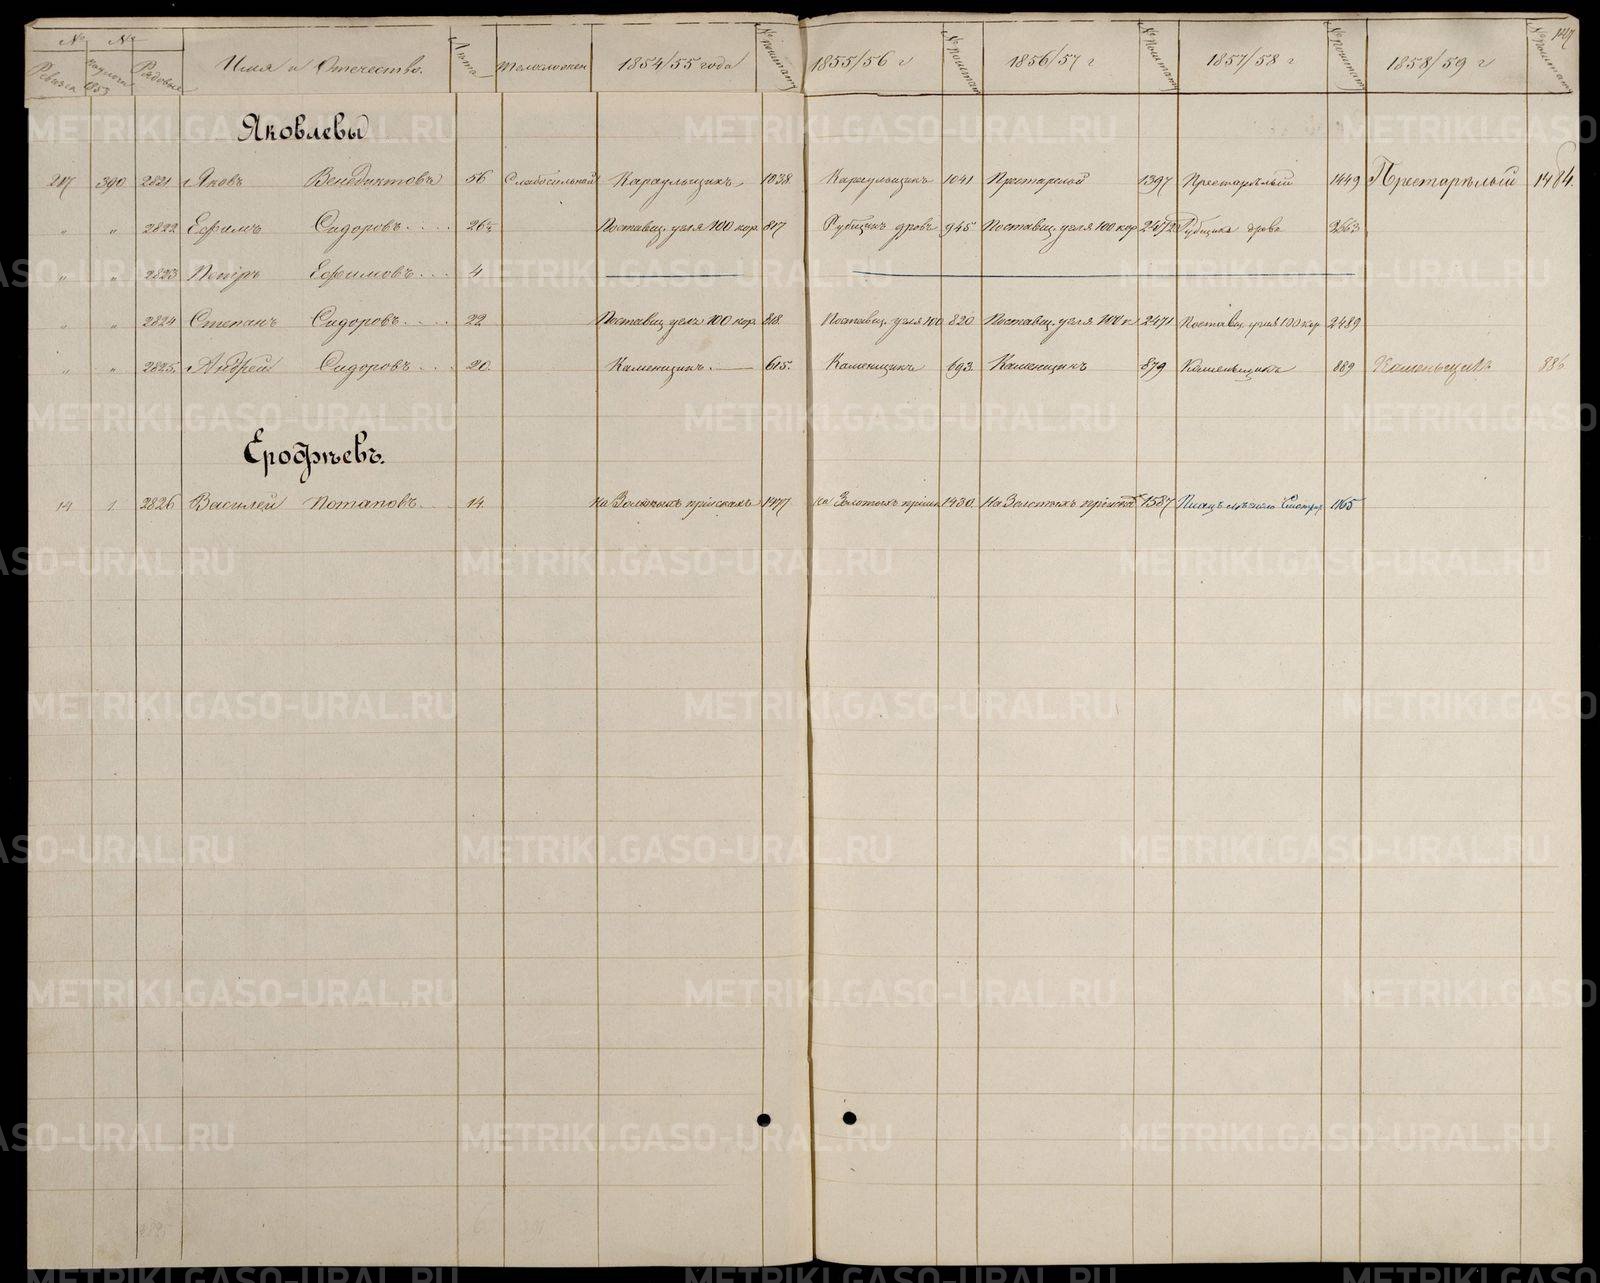 № № 147
Имя и Отчество. Лета Телосложен 1854/55 года № по штату 1855/56 г № по штат 1856/57 г № по штату 1857/58 г № по штат 1858/59 г № по штату
Ревизск 1853 Рядовые
Яковлевы
217 390 2821 Яковъ Венедиктовъ 56 Слабосильной Караульщикъ 1038. Караульщикъ 1041 Престарелой 1397 Престарѣлый 1449 Престарѣлый 1484.
" " 2822 Ефимъ Сидоровъ.... 26 Поставщ. угля 100 кор 817 Рубщикъ дровъ 945 Поставщ. угля 100 кор 2472 Рубщика дровъ 2563
" " 2823 Петръ Ефимовъ... 4
" " 2824 Степанъ Сидоровъ.... 22 Поставщ угля 100 кор. 818. Поставщ. угля 100 820 Поставщ. угля 100 к 2471 Поставщ. угля 100 кор 2489
" " 2825. Андрей Сидоровъ... 20. Каменщикъ. 615. Каменщикъ 693. Каменщикъ 879 Каменьщикъ 889 Каменьщикъ 886
Ерофѣевъ.
14 1. 2826 Василей Потаповъ... 14. На Золотыхъ пріискахъ 1477 на Золотыхъ пріиск 1430. На Золотыхъ пріискахъ 1587 1165
METRIKI.GASO-URAL.RU